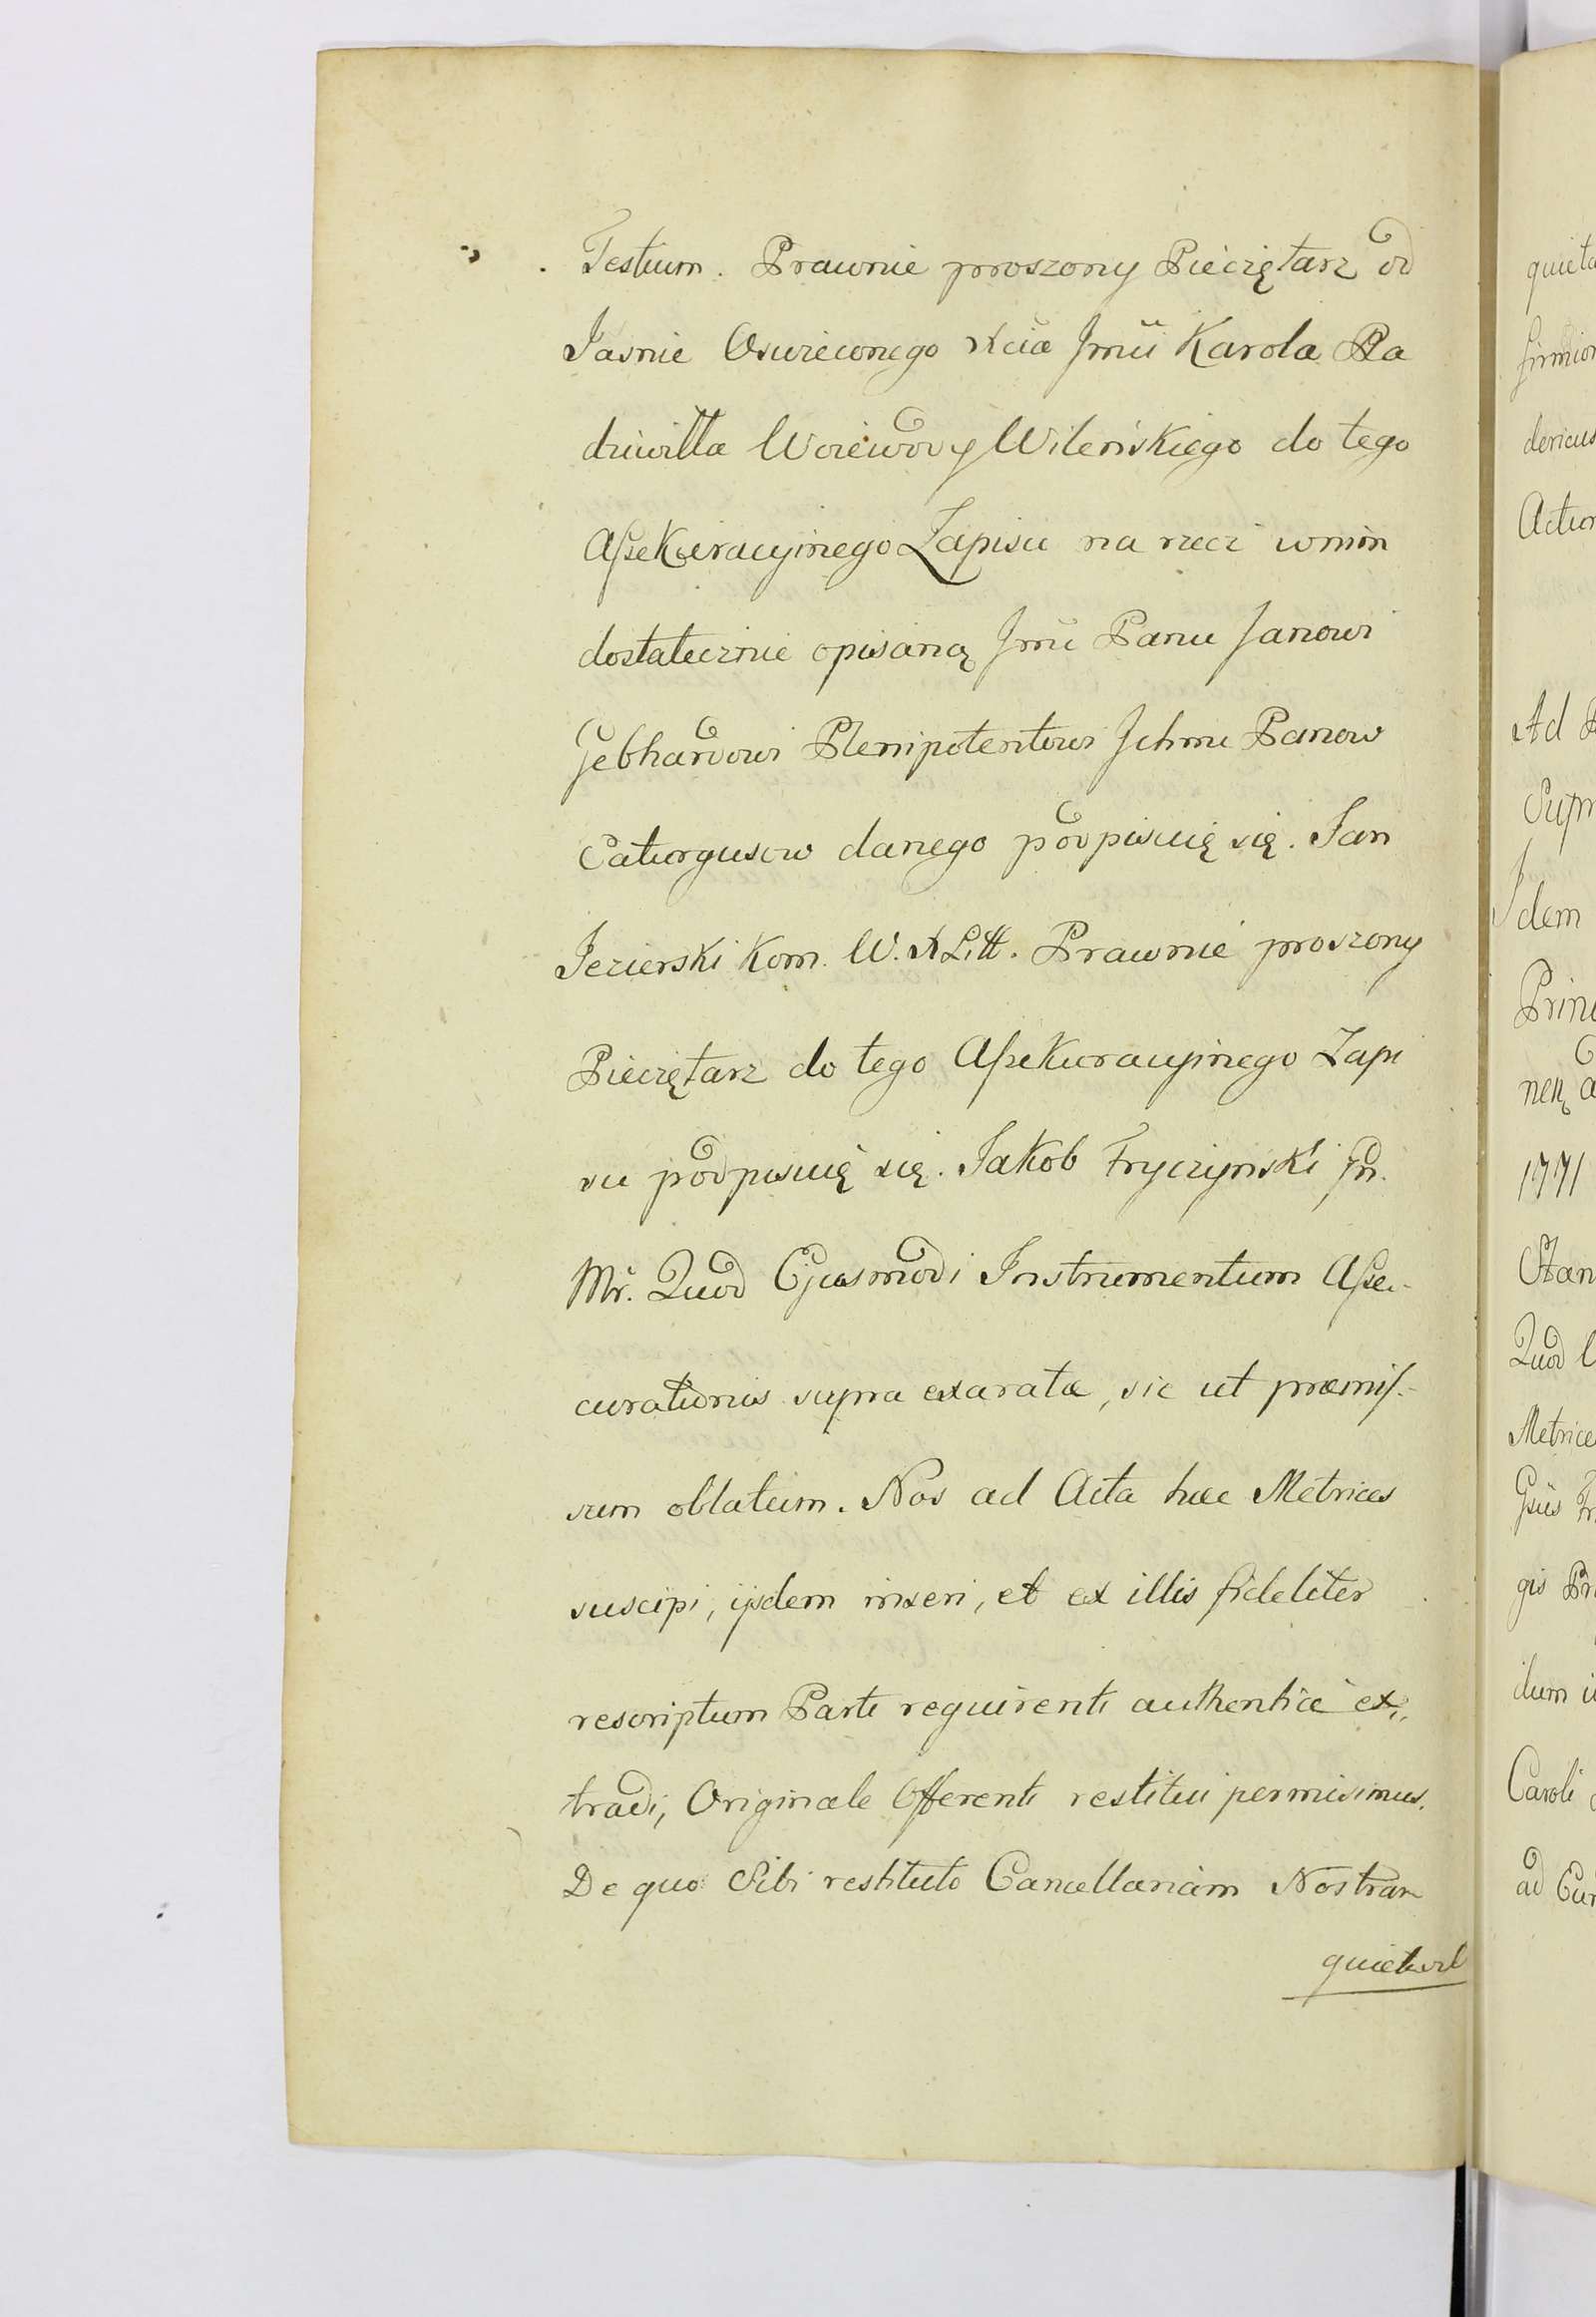 Testium. Prawnie proszony Pieciętarz od
Jasnie Oswieconego Xcia Jmći Karola Ra
dziwiłła Woiewody Wileńskiego do tego
Assekuracyinego Zapisu na rzecz wnim
dostatecznie opisaną Jmć Panu Janowi
Gebhardowi Plenipotentowi Ichmć Panow
Caturgusow danego podpisuię się. Jan
Jezierski Kom. W. X Litt. Prawnie proszony
Pieczętarz do tego Assekuracyinego Zapi
su podpisuię się. Jakob Fryczyński
Mr. Quod Ejusmodi Instrumentum Asse-
curationis supra exaratæ, sic ut præmis-
sum oblatum. Nos ad Acta hæc Metrices
suscipi, ijsdem inseri, et ex illis fideliter
rescriptum Parti requirenti authenticè ex,,
tradi, Originale Offerenti restitui permisimus.
De quo Sibi restituto Cancellariam Nostram
quieta
Actor
Ad
Supr
Idem
Prin
1771
Stan
Quod
Metrice
gis
Caroli
ad Cur